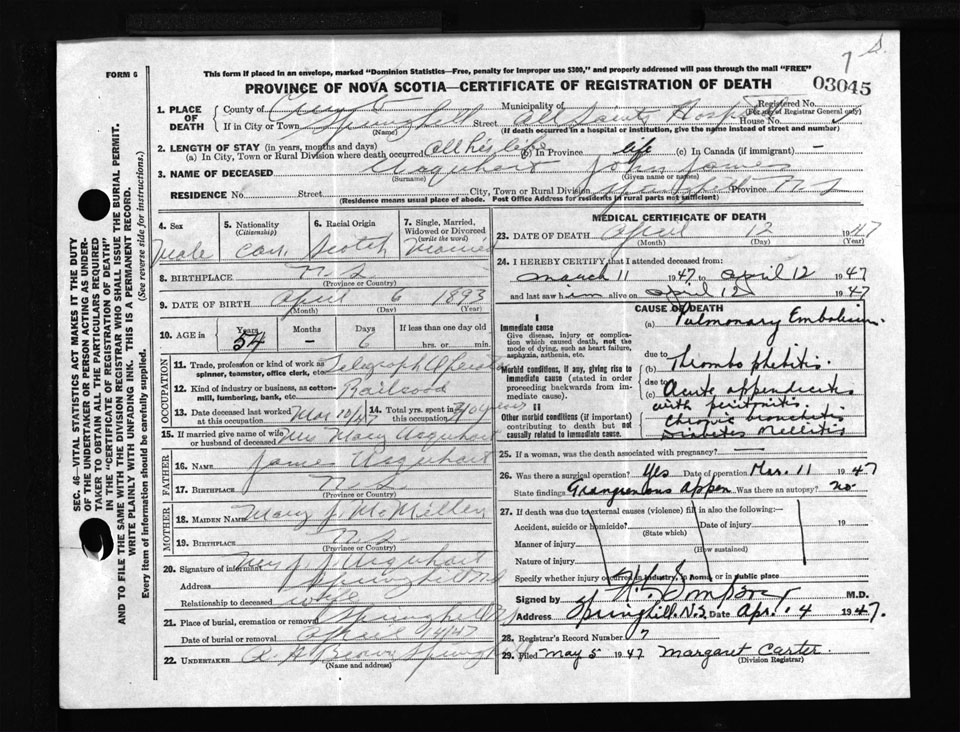 FORM 6
This form if placed in an envelope, marked "Dominion Statistics—Free, penalty for improper use $300," and properly addressed will pass through the mail "FREE"
7
03045
PROVINCE OF NOVA SCOTIA—CERTIFICATE OF REGISTRATION OF DEATH
SEC. 46—VITAL STATISTICS ACT MAKES IT THE DUTY
OF THE UNDERTAKER OR PERSON ACTING AS UNDER-
TAKER TO OBTAIN ALL THE PARTICULARS REQUIRED
IN THE "CERTIFICATE OF REGISTRATION OF DEATH"
AND TO FILE THE SAME WITH THE DIVISION REGISTRAR WHO SHALL ISSUE THE BURIAL PERMIT.
WRITE PLAINLY WITH UNFADING INK. THIS IS A PERMANENT RECORD.
Every item of information should be carefully supplied. (See reverse side for instructions.)
1. PLACE OF DEATH County of Municipality of Registered No.
(For use of Registrar General only)
If in City or Town Springhill Street All Saints Hospital House No.
(Name) (If death occurred in a hospital or institution, give the name instead of street and number)
2. LENGTH OF STAY (in years, months and days)
(a) In City, Town or Rural Division where death occurred all his life (b) In Province life (c) In Canada (if immigrant) —
3. NAME OF DECEASED Urquhart John James
(Surname) (Given name or names)
RESIDENCE No. Street City, Town or Rural Division Springhill Province N S
(Residence means usual place of abode. Post Office Address for residents in rural parts not sufficient)
4. Sex 5. Nationality (Citizenship) 6. Racial Origin 7. Single, Married, Widowed or Divorced (write the word)
Male Can. Scotch Married
8. BIRTHPLACE N.S.
(Province or Country)
9. DATE OF BIRTH April 6 1893
(Month) (Day) (Year)
10. AGE in Years Months Days If less than one day old
54 — 6 hrs. or min.
OCCUPATION
11. Trade, profession or kind of work as spinner, teamster, office clerk, etc. Telegraph Operator
12. Kind of industry or business, as cotton-mill, lumbering, bank, etc. Railroad
13. Date deceased last worked at this occupation Mar 10/47 14. Total yrs. spent in this occupation years
15. If married give name of wife or husband of deceased Mrs Mary Urquhart
FATHER
16. NAME James Urquhart
17. BIRTHPLACE N S
(Province or Country)
MOTHER
18. MAIDEN NAME Mary J. McMillen
19. BIRTHPLACE N S
(Province or Country)
20. Signature of informant Mrs J. J. Urquhart
Address Springhill N.S
Relationship to deceased wife
21. Place of burial, cremation or removal Springhill N S
Date of burial or removal April 14/47
22. UNDERTAKER A. H Brown Springhill
(Name and address)
MEDICAL CERTIFICATE OF DEATH
23. DATE OF DEATH April 12 1947
(Month) (Day) (Year)
24. I HEREBY CERTIFY that I attended deceased from:
March 11 1947 to April 12 1947
and last saw him alive on April 12 1947
CAUSE OF DEATH
I
Immediate cause
Give disease, injury or complication which caused death, not the mode of dying, such as heart failure, asphyxia, asthenia, etc.
(a) Pulmonary Embolism
due to
Morbid conditions, if any, giving rise to immediate cause (stated in order proceeding backwards from immediate cause).
(b) Thrombo phebitis.
due to
(c) Acute appendicitis
with peritonitis.
II
Other morbid conditions (if important) contributing to death but not causally related to immediate cause.
Chronic bronchitis
Diabetes Mellitis
25. If a woman, was the death associated with pregnancy? —
26. Was there a surgical operation? Yes Date of operation Mar. 11 1947
State findings Grangrenous Appen Was there an autopsy? no
27. If death was due to external causes (violence) fill in also the following:—
Accident, suicide or homicide? Date of injury 19
(State which)
Manner of injury
(How sustained)
Nature of injury
Specify whether injury occurred in industry, in home, or in public place
Signed by M.D.
Springhill. N.S. Date Apr. 14 1947.
28. Registrar's Record Number 7
29. Filed May 5 1947 Margaret Carter.
(Division Registrar)